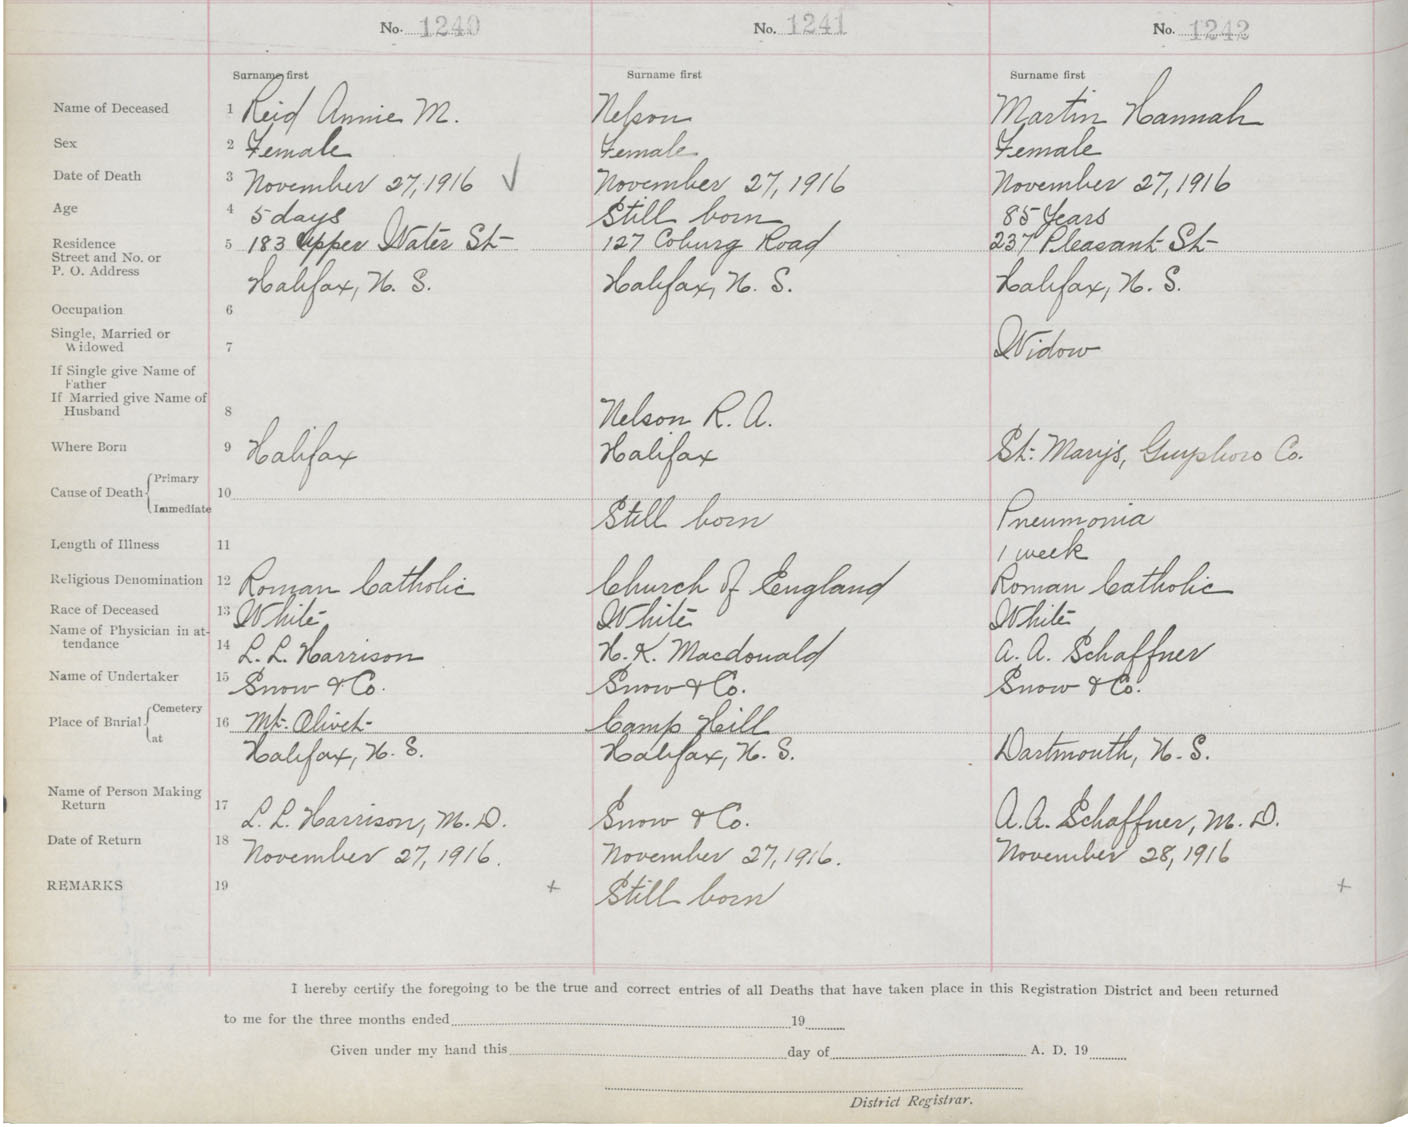 No. 1240 No. 1241 No. 1242
Surname first Surname first Surname first
Name of Deceased 1 Reid Annie M. Nelson Martin Hannah
Sex 2 Female Female Female
Date of Death 3 November 27, 1916 ✓ November 27, 1916 November 27, 1916
Age 4 5 days Still born 85 Years
Residence 5 183 Upper Water St- 127 Coburg Road 237 Pleasant St-
Street and No. or
P. O. Address Halifax, N. S. Halifax, N. S. Halifax, N. S.
Occupation 6
Single, Married or
Widowed 7 Widow
If Single give Name of
Father
If Married give Name of
Husband 8 Nelson R. A.
Where Born 9 Halifax Halifax St. Mary's, Guysboro Co.
Cause of Death Primary
10
Immediate Still born Pneumonia
Length of Illness 11 1 week
Religious Denomination 12 Roman Catholic Church of England Roman Catholic
Race of Deceased 13 White White White
Name of Physician in at-
tendance 14 L. L. Harrison H. K. Macdonald A. A. Schaffner
Name of Undertaker 15 Snow & Co. Snow & Co. Snow & Co.
Place of Burial Cemetery 16 Mt. Olivet- Camp Hill
at Halifax, N. S. Halifax, N. S. Dartmouth, N. S.
Name of Person Making
Return 17 L. L. Harrison, M. D. Snow & Co. A. A. Schaffner, M. D.
Date of Return 18 November 27, 1916. November 27, 1916. November 28, 1916
REMARKS 19 + Still born +
I hereby certify the foregoing to be the true and correct entries of all Deaths that have taken place in this Registration District and been returned
to me for the three months ended 19
Given under my hand this day of A. D. 19
District Registrar.